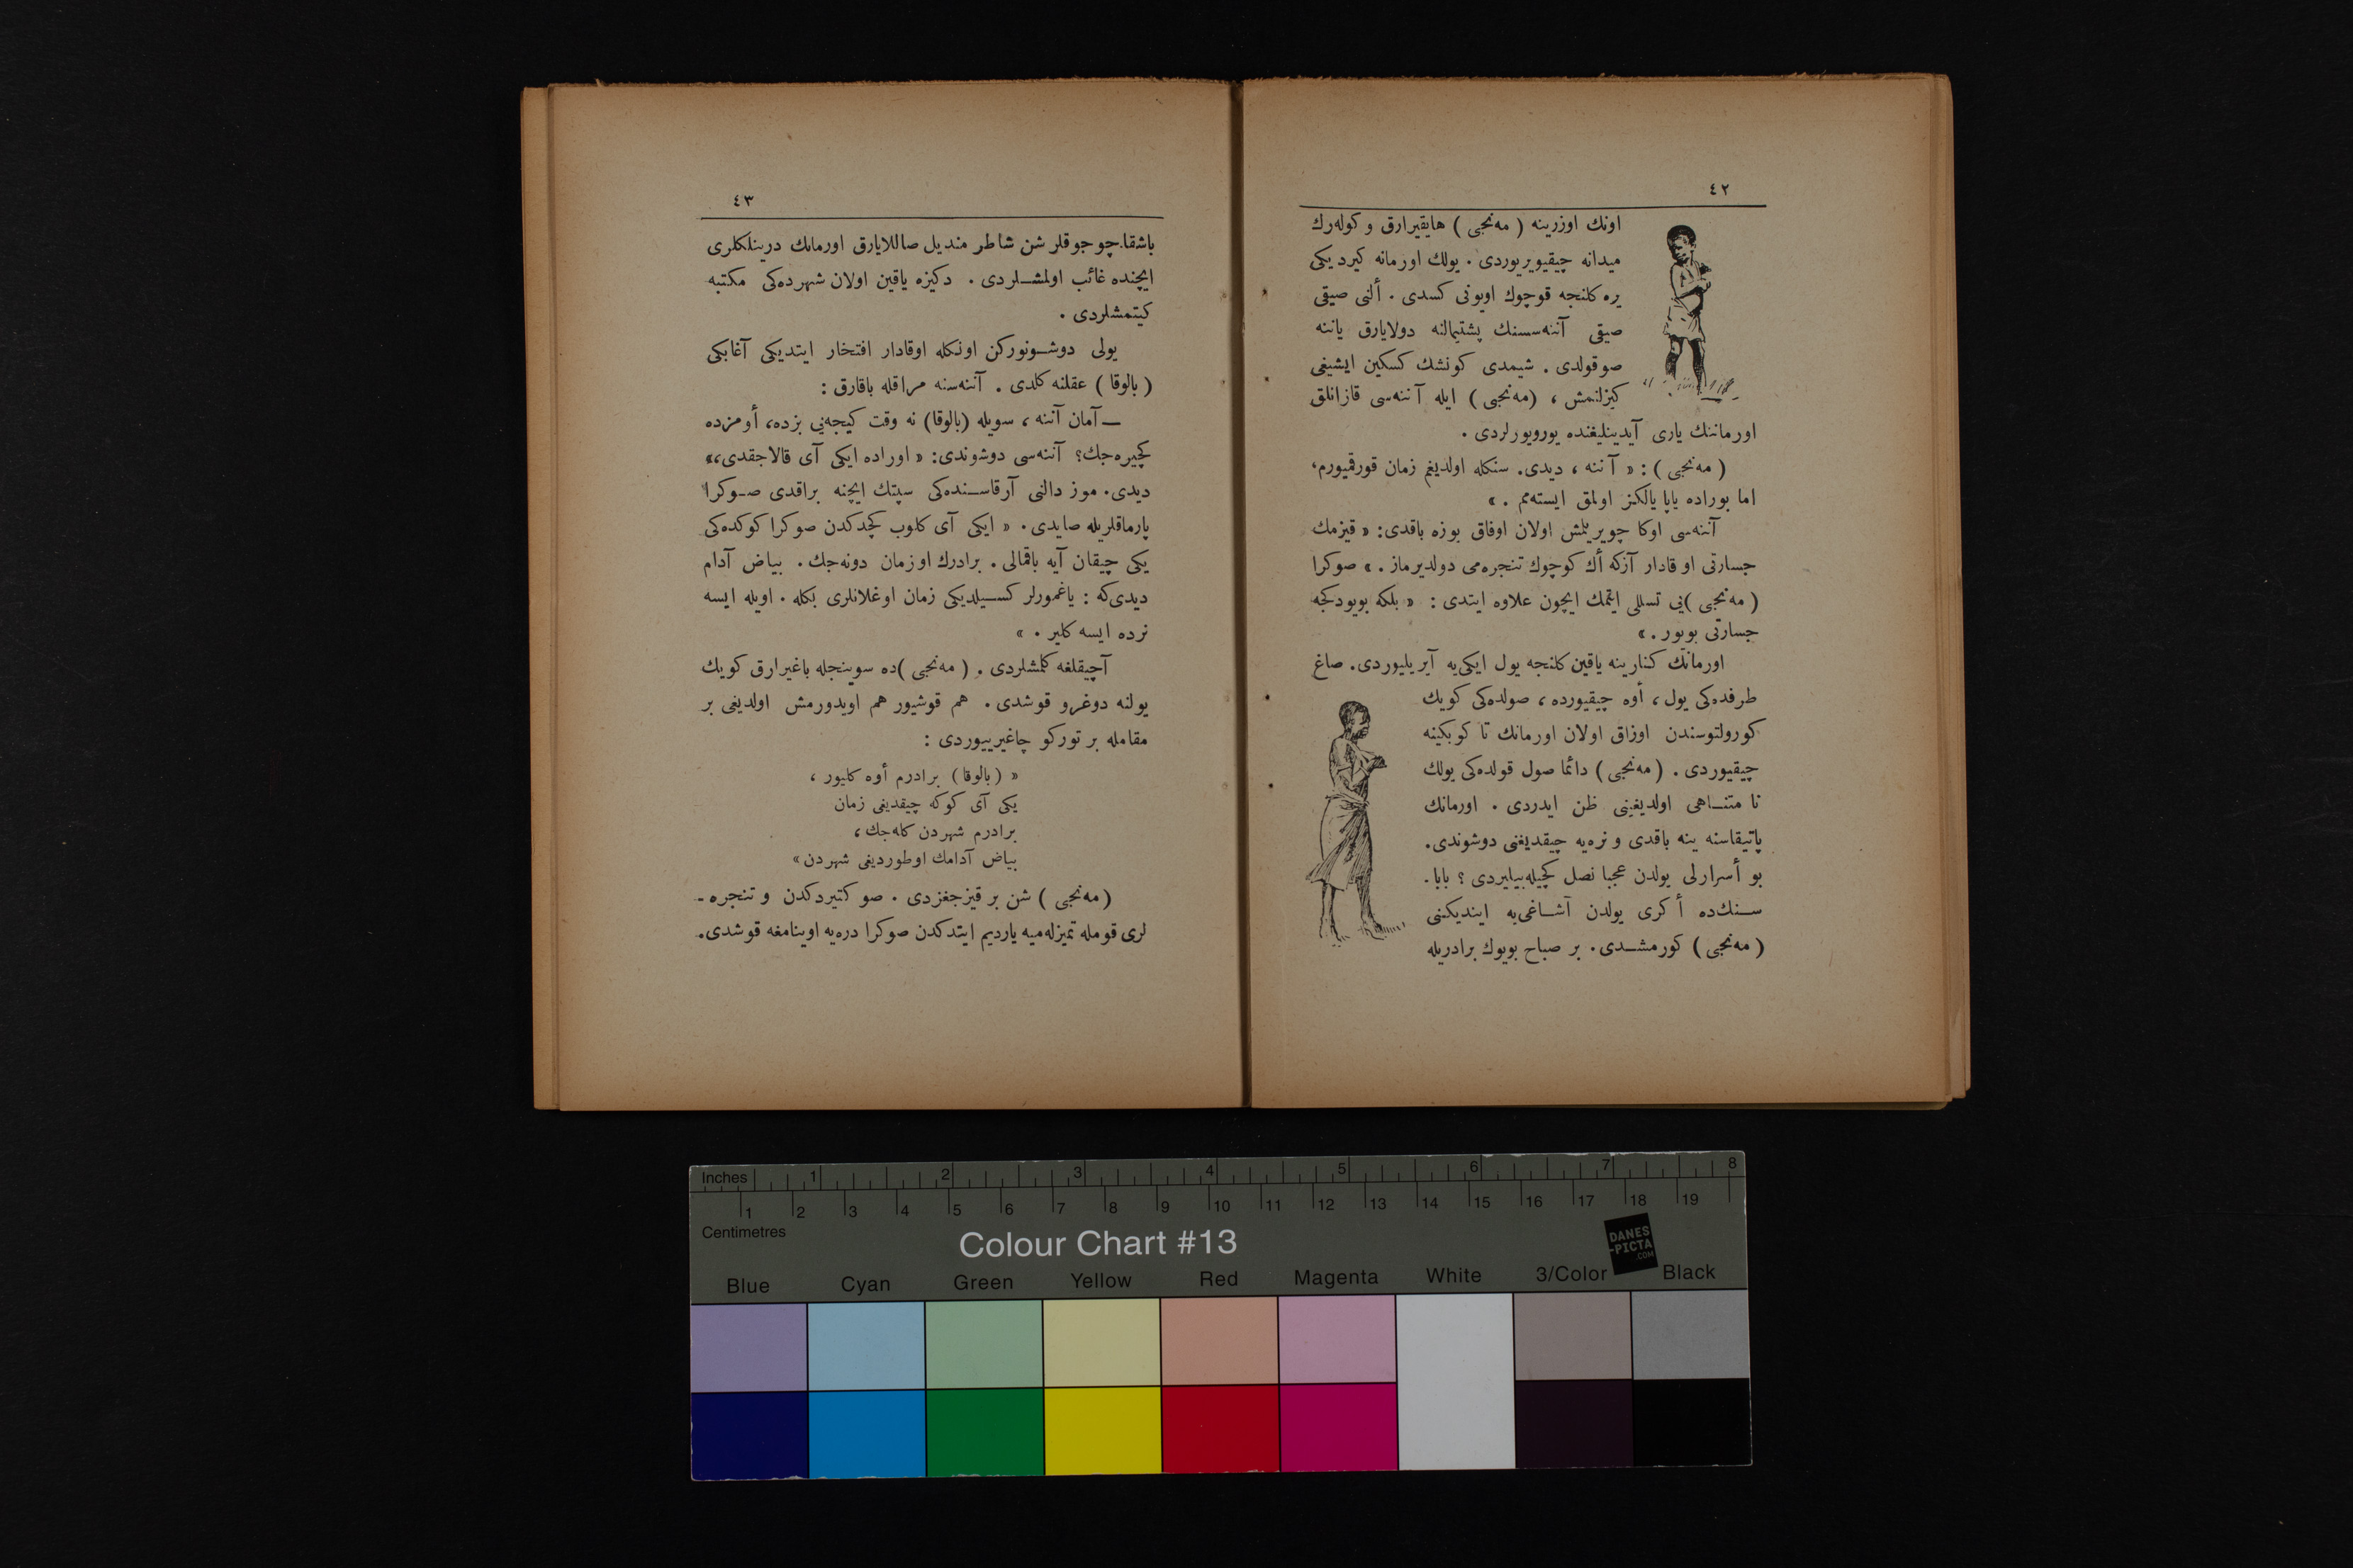 ٤٢
اونك اوزرینه ( مه‌نجی ) هایقیرارق و كوله‌رك
میدانه چیقیویریوردی . یولك اورمانه كیردیكی
یره كلنجه قوچوك اویونی كسدی . ألنی صیقی
صیقی آننه‌سنك پشتیمالنه دولایارق یاننه
صوقولدی . شیمدی كونشك كسكین ایشیغی
كیزلنمش ، (مه‌نجی ) ایله آننه‌سی قازانلق
اورماننك یاری آیدینلیغنده یورویورلردی .
( مه‌نجی ) : « آننه ، دیدی. سنكله اولدیغم زمان قورقمیورم،
اما بوراده یاپا یالكز اولمق ایسته‌مم . »
آننه‌سی اوكا چویریلمش اولان اوفاق یوزه باقدی: « قیزمك
جسارتی او قادار آزكه أك كوچوك تنجره‌می دولدیرماز . » صوكرا
( مه‌نجی )یی تسللی ایتمك ایچون علاوه ایتدی : « بلكه بویودكجه
جسارتی بویور . »
اورمانك كنارینه یاقین كلنجه یول ایكی‌یه آیریلیوردی. صاغ
طرفده‌كی یول ، أوه چیقیورده ، صولده‌كی كویك
كورولتوسندن اوزاق اولان اورمانك تا كوبكینه
چیقیوردی . (مه‌نجی ) دائما صول قولده‌كی یولك
نا متناهی اولدیغینی ظن ایدردی . اورمانك
پاتیقاسنه ینه باقدی و نره‌یه چیقدیغنی دوشوندی.
بو أسرارلی یولدن عجبا نصل كچیله‌بیلیردی ؟ بابا-
سنك‌ده أكری یولدن آشاغی‌یه ایندیكنی
( مه‌نجی ) كورمشدی. بر صباح بویوك برادریله
٤٣
باشقا چوجوقلر شن شاطر مندیل صاللایارق اورمانك درینلكلری
ایچنده غائب اولمشلردی . دكیزه یاقین اولان شهرده‌كی مكتبه
كیتمشلردی .
یولی دوشونوركن اونكله اوقادار افتخار ایتدیكی آغابكی
( بالوقا ) عقلنه كلدی . آننه‌سنه مراقله باقارق :
— آمان آننه ، سویله (بالوقا) نه وقت كیجه‌یی بزده، أومزده
كچیره‌جك؟ آننه‌سی دوشوندی: « اوراده ایكی آی قالاجقدی،»
دیدی. موز دالنی آرقاسنده‌كی سپتك ایچنه براقدی صوكرا
پارماقلریله صایدی. « ایكی آی كلوب كچدكدن صوكرا كوكده‌كی
یكی چیقان آیه باقمالی . برادرك اوزمان دونه‌جك. بیاض آدام
دیدی‌كه : یاغمورلر كسیلدیكی زمان اوغلانلری بكله . اویله ایسه
نرده ایسه كلیر . »
آچیقلغه كلمشلردی . ( مه‌نجی )ده سوینجله باغیرارق كویك
یولنه دوغرو قوشدی. هم قوشیور هم اویدورمش اولدیغی بر
مقامله بر توركو چاغیریبوردی :
« (بالوقا) برادرم أوه كلیور ،
یكی آی كوكه چیقدیغی زمان
برادرم شهردن كله‌جك ،
بیاض آدامك اوطوردیغی شهردن»
(مه‌نجی ) شن بر قیزجغزدی . صو كتیردكدن و تنجره-
لری قومله تمیزله‌میه یاردیم ایتدكدن صوكرا دره‌یه اوینامغه قوشدی.
Inches 1 2 3 4 5 6 7 8
1 2 3 4 5 6 7 8 9 10 11 12 13 14 15 16 17 18 19
Centimetres
Colour Chart #13
DANES
-PICTA
.COM
Blue Cyan Green Yellow Red Magenta White 3/Color Black